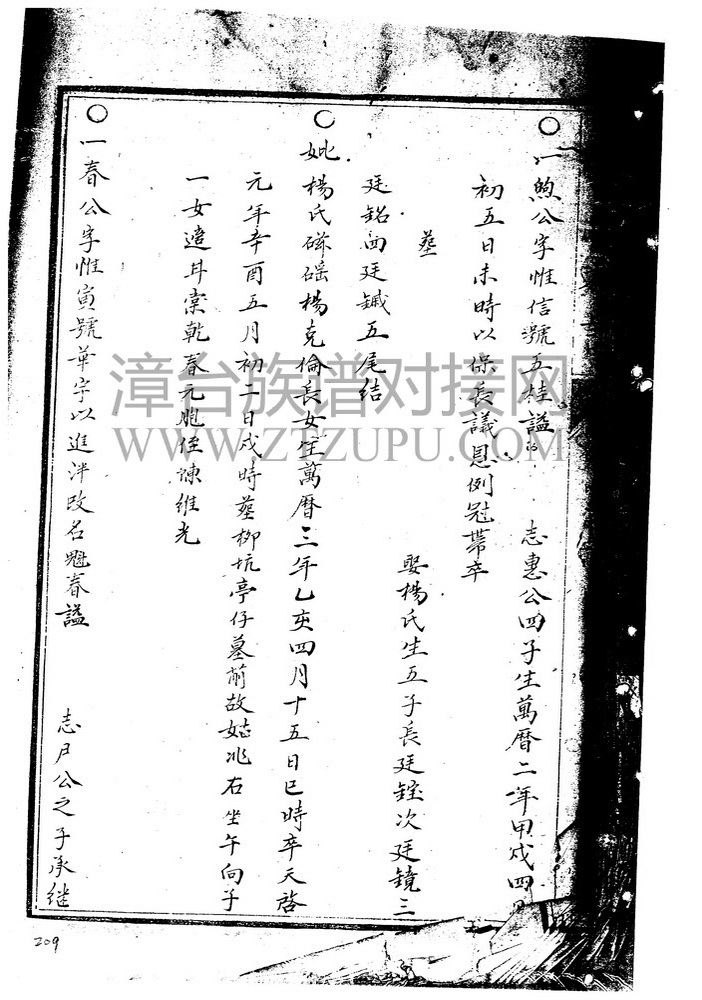 一煦公字惟信號五桂謚 志惠公四子生萬曆二年甲戌四月
初五日未時以保長議恩例冠帶卒
葬 娶楊氏生五子長廷銓次廷鏡三
廷銘四廷鍼五尾結
妣楊氏 楊克倫長女生萬曆三年乙亥四月十五日巳時卒天啓
元年辛酉五月初二日戌時葬柳坑亭仔墓前故姑兆右坐午向子
一女適井棠乾春元胞侄諫維光
一春公字惟寅號華宇以進泮改名魁春謚 志尸公之子承継
漳台族谱对接网
WWW.ZTZUPU.COM
209